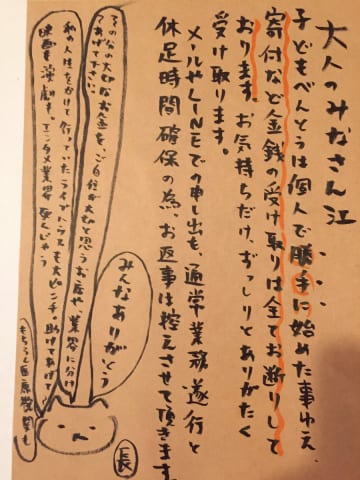 大人のみなさん江
子どもべんとうは個人で勝手に始めた事ゆえ、
寄付など金銭の受け取りは全てお断りして
おります。お気持ちだけ、ずっしりとありがたく
受け取ります。
メールやLINEでの申し出も、通常業務遂行と
休足時間確保の為、お返事は控えさせて頂きます。
みんなありがとう
長
その分の大切なお金を、ご自信が大切と思うお店や業界に分け
てあげて下さい。
私の人生をかけて行っていたライブハウスも大ピンチ。助けてあげて。
映画も演劇も、エンタメ業界死んじゃう
もちろん医療機関も